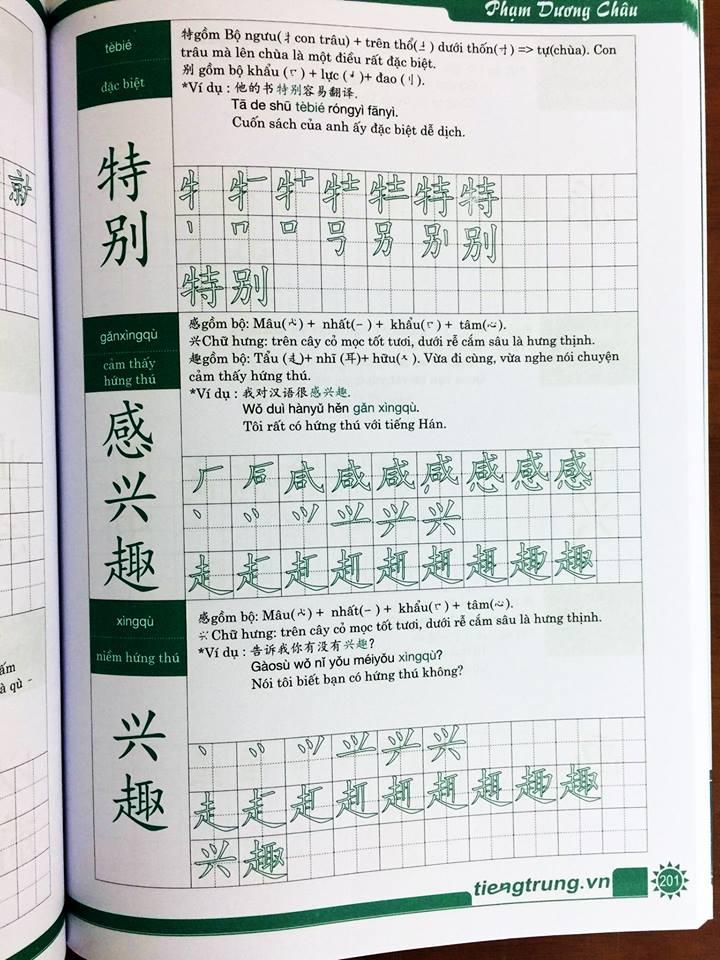 Phạm Dương Châu
tèbié
đặc biệt
特别
特gồm Bộ ngưu(牜con trâu) + trên thổ(土) dưới thốn(寸) => tự(chùa). Con
trâu mà lên chùa là một điều rất đặc biệt.
别 gồm bộ khẩu (口) + lực (力)+ đao (刂).
*Ví dụ : 他的书特别容易翻译.
Tā de shū tèbié róngyì fānyì.
Cuốn sách của anh ấy đặc biệt dễ dịch.
特 特
口 号 另 别 别
特别
gǎnxìngqù
cảm thấy
hứng thú
感兴趣
感gồm bộ: Mâu() + nhất(一) + khẩu(口) + tâm(心).
兴Chữ hưng: trên cây cỏ mọc tốt tươi, dưới rễ cắm sâu là hưng thịnh.
趣gồm bộ: Tẩu (走)+ nhĩ (耳)+ hữu(又). Vừa đi cùng, vừa nghe nói chuyện
cảm thấy hứng thú.
*Ví dụ : 我对汉语很感兴趣.
Wǒ duì hànyǔ hěn gǎn xìngqù.
Tôi rất có hứng thú với tiếng Hán.
咸 感 感 感
兴 兴
走 趣 趣
xìngqù
niềm hứng thú
兴趣
感gồm bộ: Mâu() + nhất(一) + khẩu(口) + tâm(心).
兴Chữ hưng: trên cây cỏ mọc tốt tươi, dưới rễ cắm sâu là hưng thịnh.
*Ví dụ : 告诉我你有没有兴趣?
Gàosù wǒ nǐ yǒu méiyǒu xìngqù?
Nói tôi biết bạn có hứng thú không?
兴 兴
走 趣 趣
兴趣
tiengtrung.vn
201